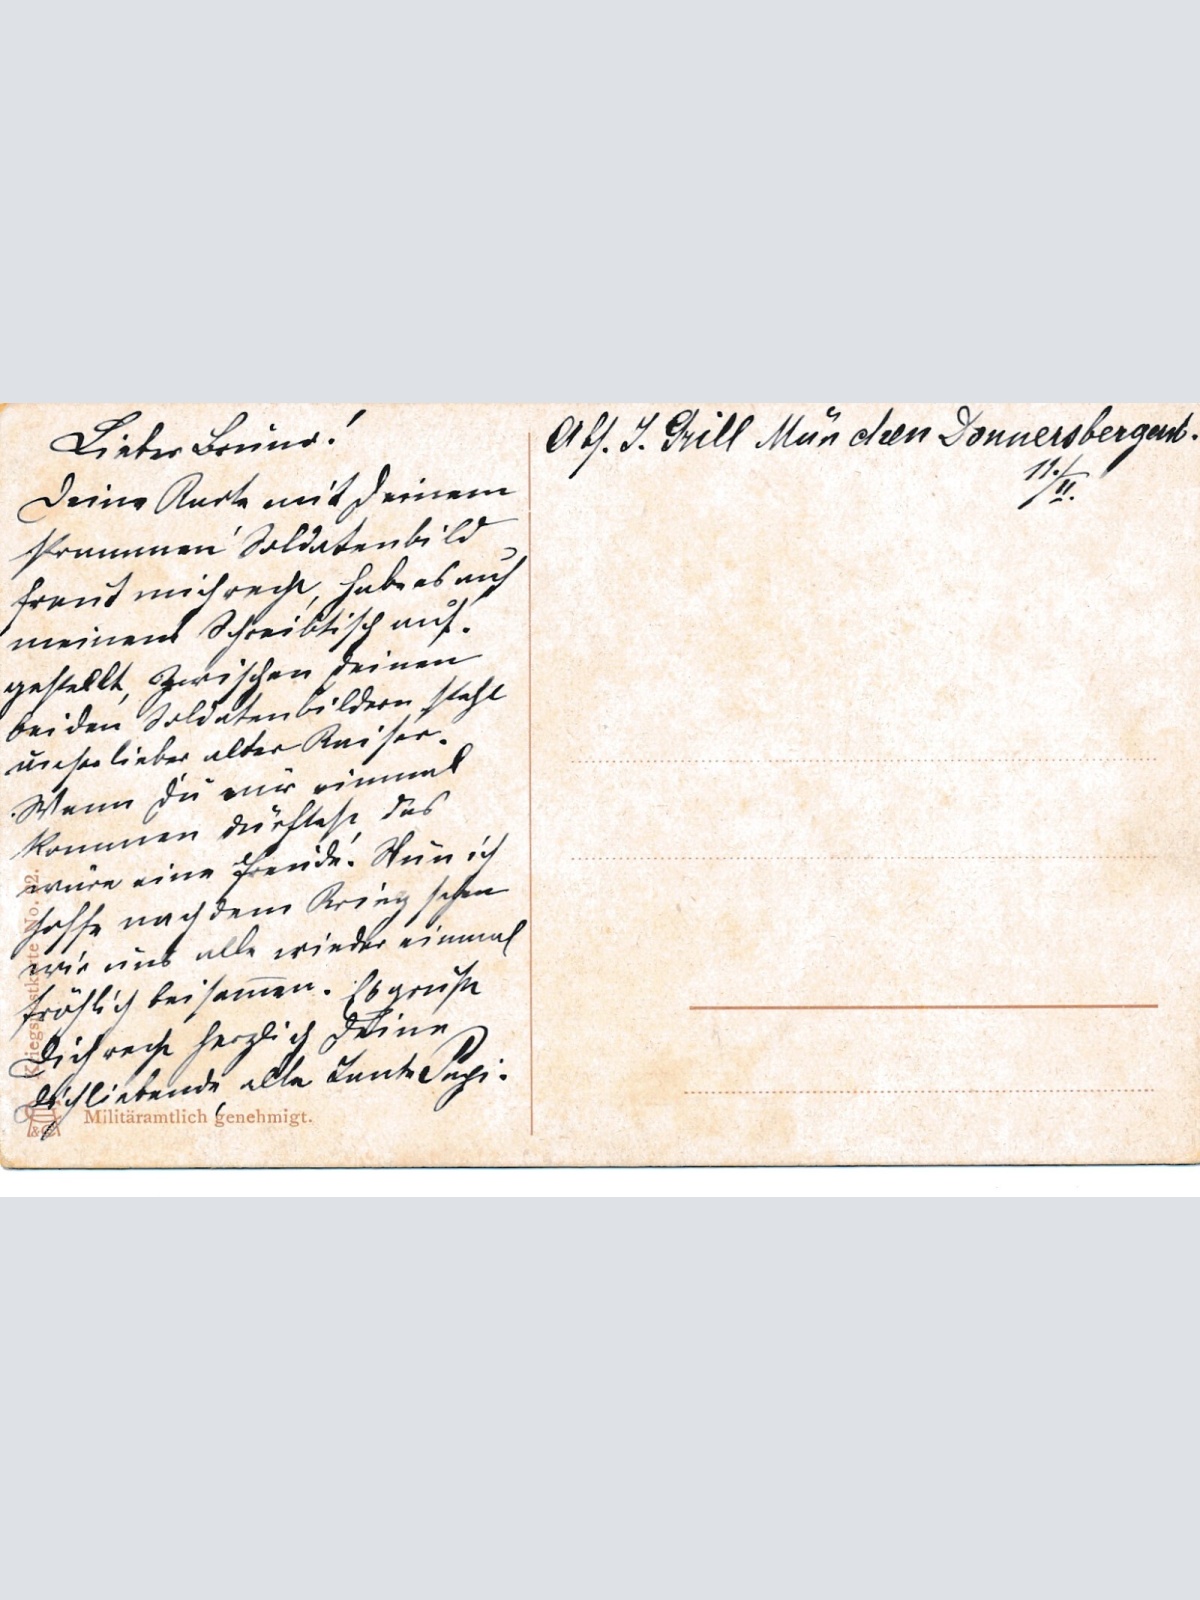 Lieber Bruno!
Deine Karte mit Deinem
strammen Soldatenbild
freut mich recht, habe es auf
meinem Schreibtisch auf-
gestellt, zwischen Deinen
beiden Soldatenbildern steht
unser lieber alter Kaiser.
Wenn Du nur einmal
kommen dürftest das
wäre eine Freude! Nun ich
hoffe nach dem Krieg sehen
wir uns alle wieder einmal
fröhlich beisamen. Es grüßt
Dich recht herzlich Deine
Dich liebende, alte Tante
Kriegspostkarte No. 12.
Militäramtlich genehmigt.
Abs. J. Grill München Donnersbergerstr.
11./II.